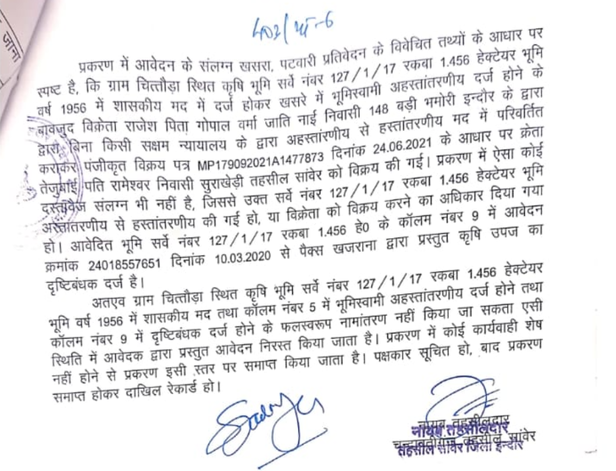 402/अ-6
प्रकरण में आवेदन के संलग्न खसरा, पटवारी प्रतिवेदन के विवेचित तथ्यों के आधार पर
स्पष्ट है, कि ग्राम चित्तौड़ा स्थित कृषि भूमि सर्वे नंबर 127/1/17 रकबा 1.456 हेक्टेयर भूमि
वर्ष 1956 में शासकीय मद में दर्ज होकर खसरे में भूमिस्वामी अहस्तांतरणीय दर्ज होने के
बावजुद विक्रेता राजेश पिता गोपाल वर्मा जाति नाई निवासी 148 बड़ी भमोरी इन्दौर के द्वारा
द्वारा बिना किसी सक्षम न्यायालय के द्वारा अहस्तांरणीय से हस्तांतरणीय मद में परिवर्तित
कराकर पंजीकृत विक्रय पत्र MP179092021A1477873 दिनांक 24.06.2021 के आधार पर क्रेता
तेजुबाई पति रामेश्वर निवासी सुराखेड़ी तहसील सांवेर को विक्रय की गई। प्रकरण में ऐसा कोई
दस्तुवेज संलग्न भी नहीं है, जिससे उक्त सर्वे नंबर 127/1/17 रकबा 1.456 हेक्टेयर भूमि
अस्तांतरणीय से हस्तांतरणीय की गई हो, या विक्रेता को विक्रय करने का अधिकार दिया गया
हो। आवेदित भूमि सर्वे नंबर 127/1/17 रकबा 1.456 हे0 के कॉलम नंबर 9 में आवेदन
क्रमांक 24018557651 दिनांक 10.03.2020 से पैक्स खजराना द्वारा प्रस्तुत कृषि उपज का
दृष्टिबंधक दर्ज है।
अतएव ग्राम चित्तौड़ा स्थित कृषि भूमि सर्वे नंबर 127/1/17 रकबा 1.456 हेक्टेयर
भूमि वर्ष 1956 में शासकीय मद तथा कॉलम नंबर 5 में भूमिस्वामी अहस्तांतरणीय दर्ज होने तथा
कॉलम नंबर 9 में दृष्टिबंधक दर्ज होने के फलस्वरूप नामांतरण नहीं किया जा सकता एसी
स्थिति में आवेदक द्वारा प्रस्तुत आवेदन निरस्त किया जाता है। प्रकरण में कोई कार्यवाही शेष
नहीं होने से प्रकरण इसी स्तर पर समाप्त किया जाता है। पक्षकार सूचित हो, बाद प्रकरण
समाप्त होकर दाखिल रेकार्ड हो।
नायब तहसीलदार
नायब तहसीलदार
चन्द्रावतीगंज तहसील सांवेर
तहसील सांवेर जिला इन्दौर